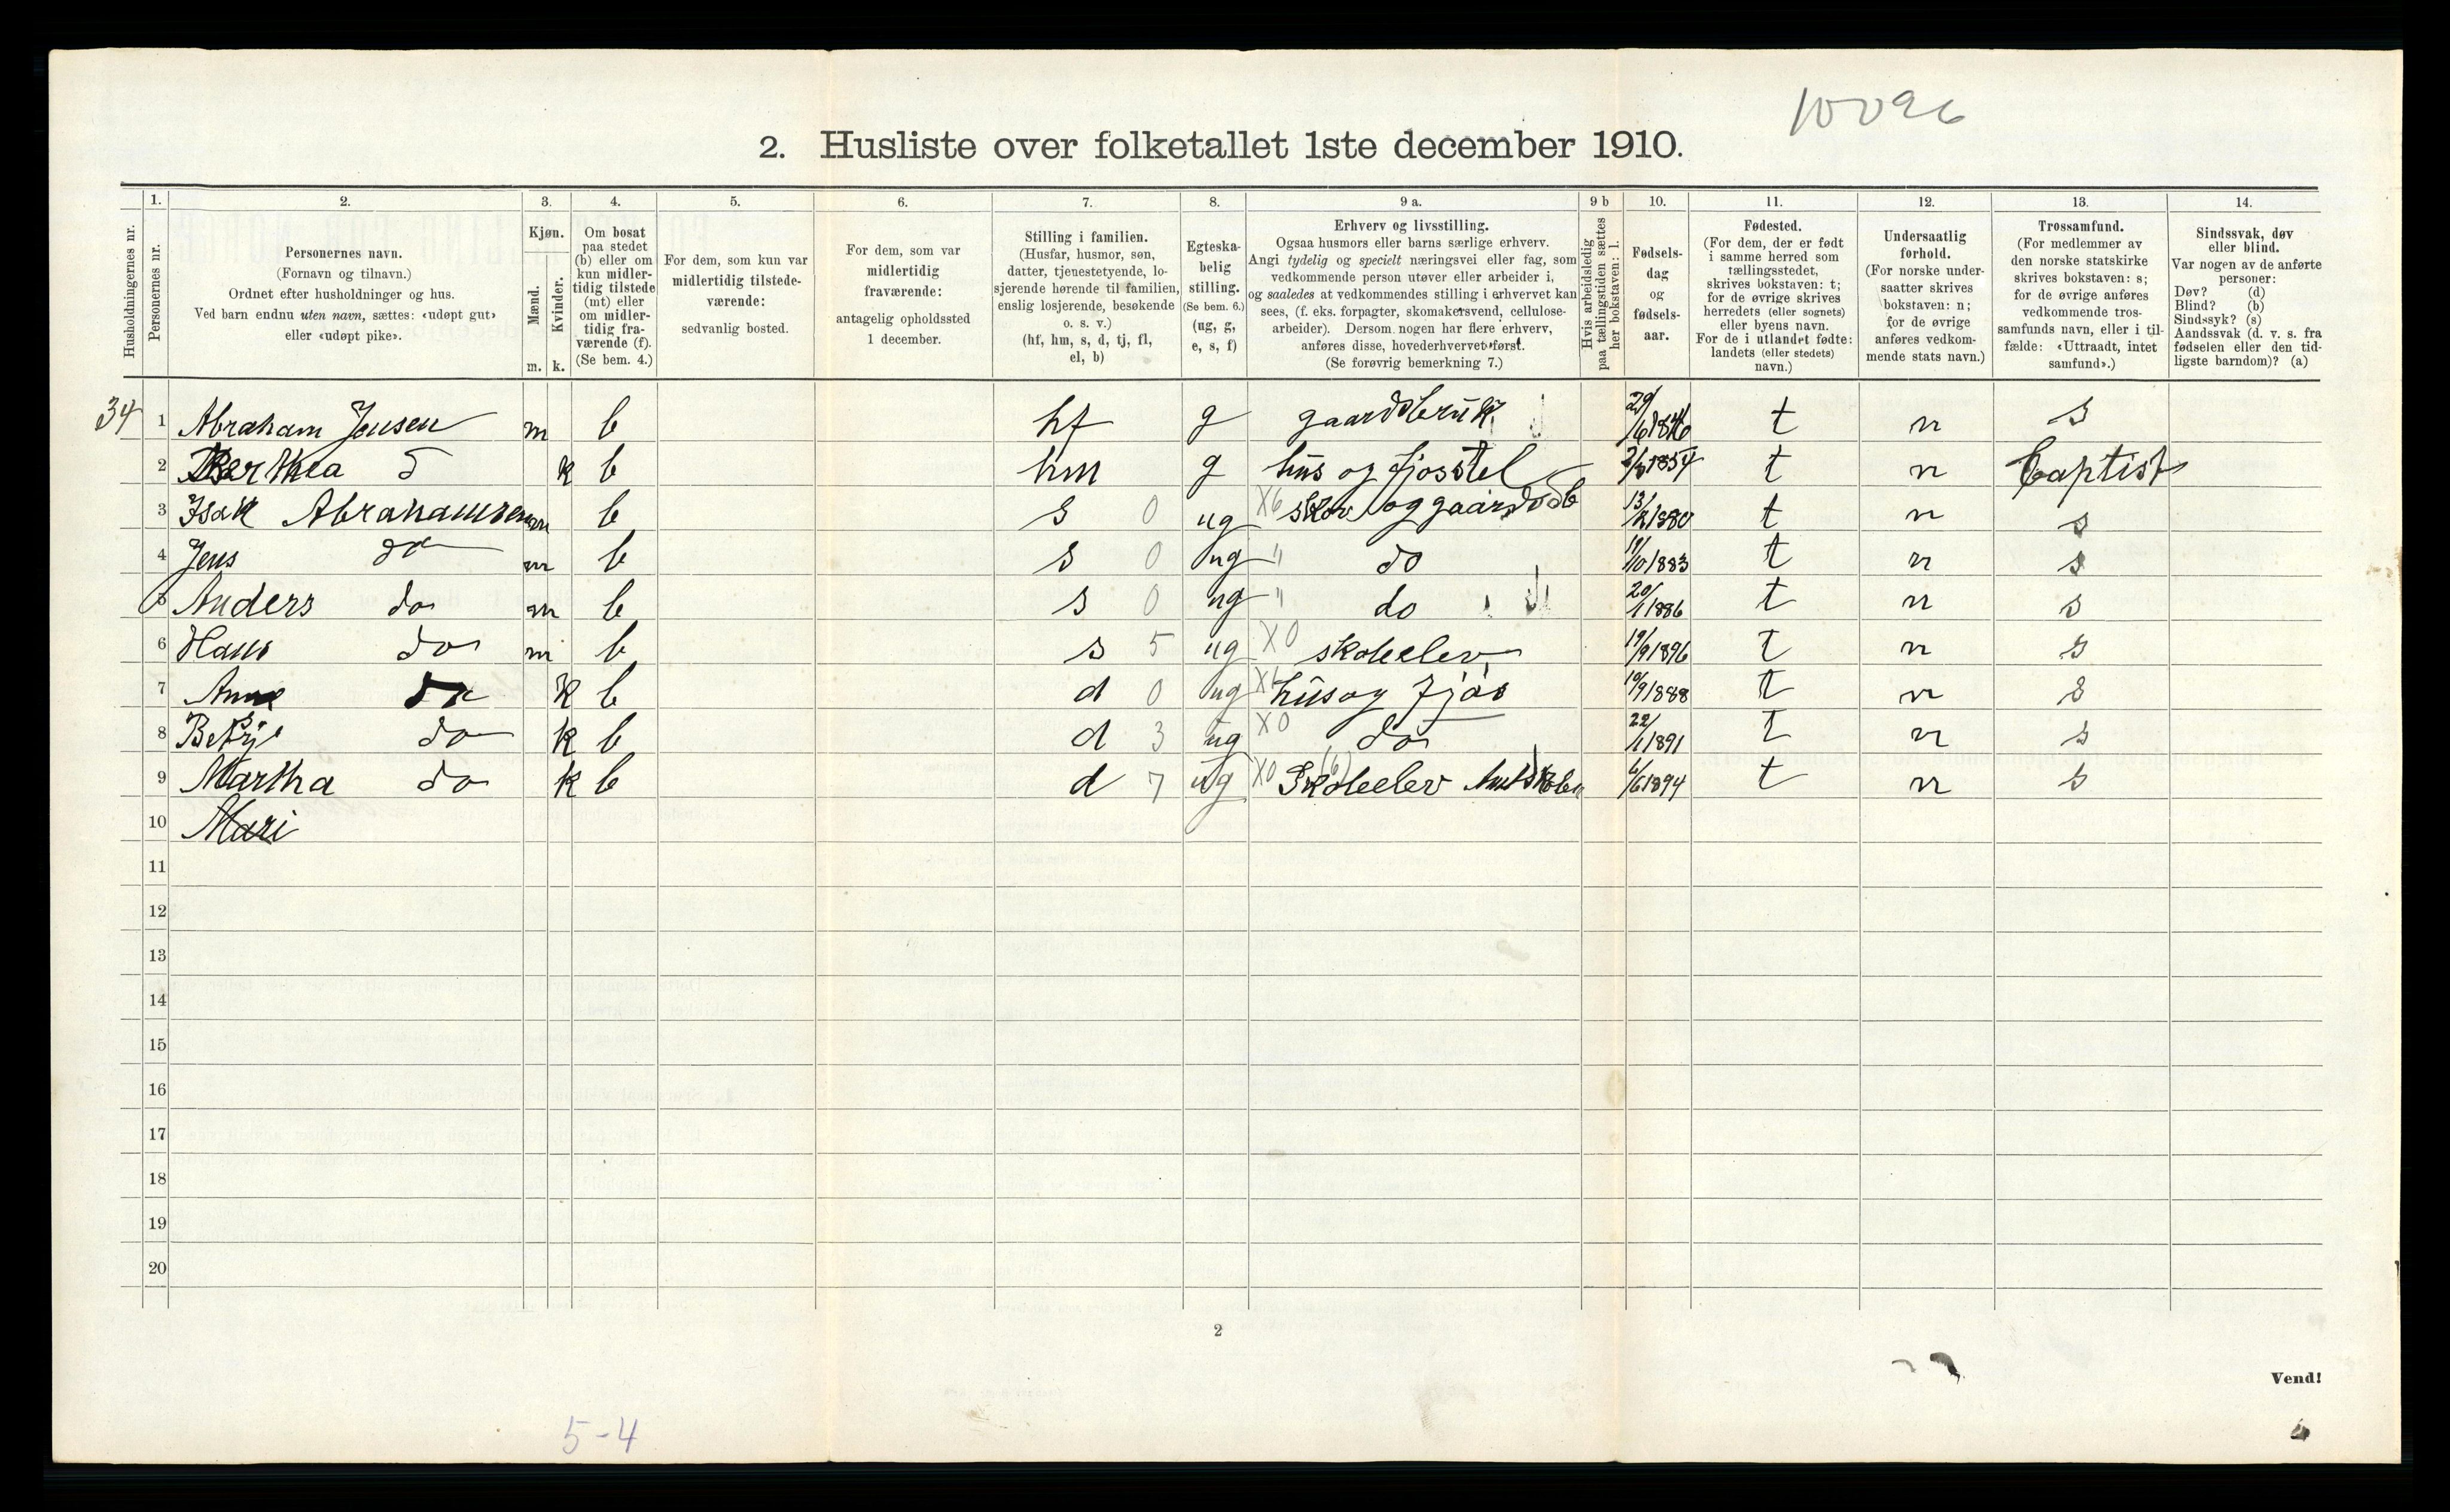 10096
2. Husliste over folketallet 1ste december 1910.
Husholdningernes nr.
1.
Personernes nr.
2.
Personernes navn.
(Fornavn og tilnavn.)
Ordnet efter husholdninger og hus.
Ved barn endnu uten navn, sættes: «udøpt gut»
eller «udøpt pike».
3.
Kjøn.
Mænd.
Kvinder.
m. k.
4.
Om bosat
paa stedet
(b) eller om
kun midler-
tidig tilstede
(mt) eller
om midler-
tidig fra-
værende (f).
(Se bem. 4.)
5.
For dem, som kun var
midlertidig tilstede-
værende:
sedvanlig bosted.
6.
For dem, som var
midlertidig
fraværende:
antagelig opholdssted
1 december.
7.
Stilling i familien.
(Husfar, husmor, søn,
datter, tjenestetyende, lo-
sjerende hørende til familien,
enslig losjerende, besøkende
o. s. v.)
(hf, hm, s, d, tj, fl,
el, b)
8.
Egteska-
belig
stilling.
(Se bem. 6.)
(ug, g,
e, s, f)
9 a.
Erhverv og livsstilling.
Ogsaa husmors eller barns særlige erhverv.
Angi tydelig og specielt næringsvei eller fag, som
vedkommende person utøver eller arbeider i,
og saaledes at vedkommendes stilling i erhvervet kan
sees, (f. eks. forpagter, skomakersvend, cellulose-
arbeider). Dersom nogen har flere erhverv,
anføres disse, hovederhvervet først.
(Se forøvrig bemerkning 7.)
9 b
Hvis arbeidsledig
paa tællingstiden sættes
her bokstaven: l.
10.
Fødsels-
dag
og
fødsels-
aar.
11.
Fødested.
(For dem, der er født
i samme herred som
tællingsstedet,
skrives bokstaven: t;
for de øvrige skrives
herredets (eller sognets)
eller byens navn.
For de i utlandet fødte:
landets (eller stedets)
navn.)
12.
Undersaatlig
forhold.
(For norske under-
saatter skrives
bokstaven: n;
for de øvrige
anføres vedkom-
mende stats navn.)
13.
Trossamfund.
(For medlemmer av
den norske statskirke
skrives bokstaven: s;
for de øvrige anføres
vedkommende tros-
samfunds navn, eller i til-
fælde: «Uttraadt, intet
samfund».)
14.
Sindssvak, døv
eller blind.
Var nogen av de anførte
personer:
Døv? (d)
Blind? (b)
Sindssyk? (s)
Aandssvak (d. v. s. fra
fødselen eller den tid-
ligste barndom)? (a)
34 1 Abraham Jensen m b hf g gaardsbruk 29/6 1846 t n s
2 Berthea k b hm g hus og fjosstel 1854 t n baptist
3 Isak Abrahamsen m b s 0 ug X6 skov og gaards 13/2 1880 t n s
4 Jens do m b s 0 ug " do 11/10 1883 t n s
5 Anders do m b s 0 ug " do 20/1 1886 t n s
6 Hans do m b s 5 ug X0 skoleelev 19/9 1896 t n s
7 Anne do k b d 0 ug hus og fjøs 10/9 1888 t n s
8 do k b d 3 ug X0 do 22/1 1891 t n s
9 Martha do k b d 7 ug X0 (6) Skoleelev Amtskolen 6/6 1894 t n s
10 Mari
11
12
13
14
15
16
17
18
19
20
2
Vend!
5-4